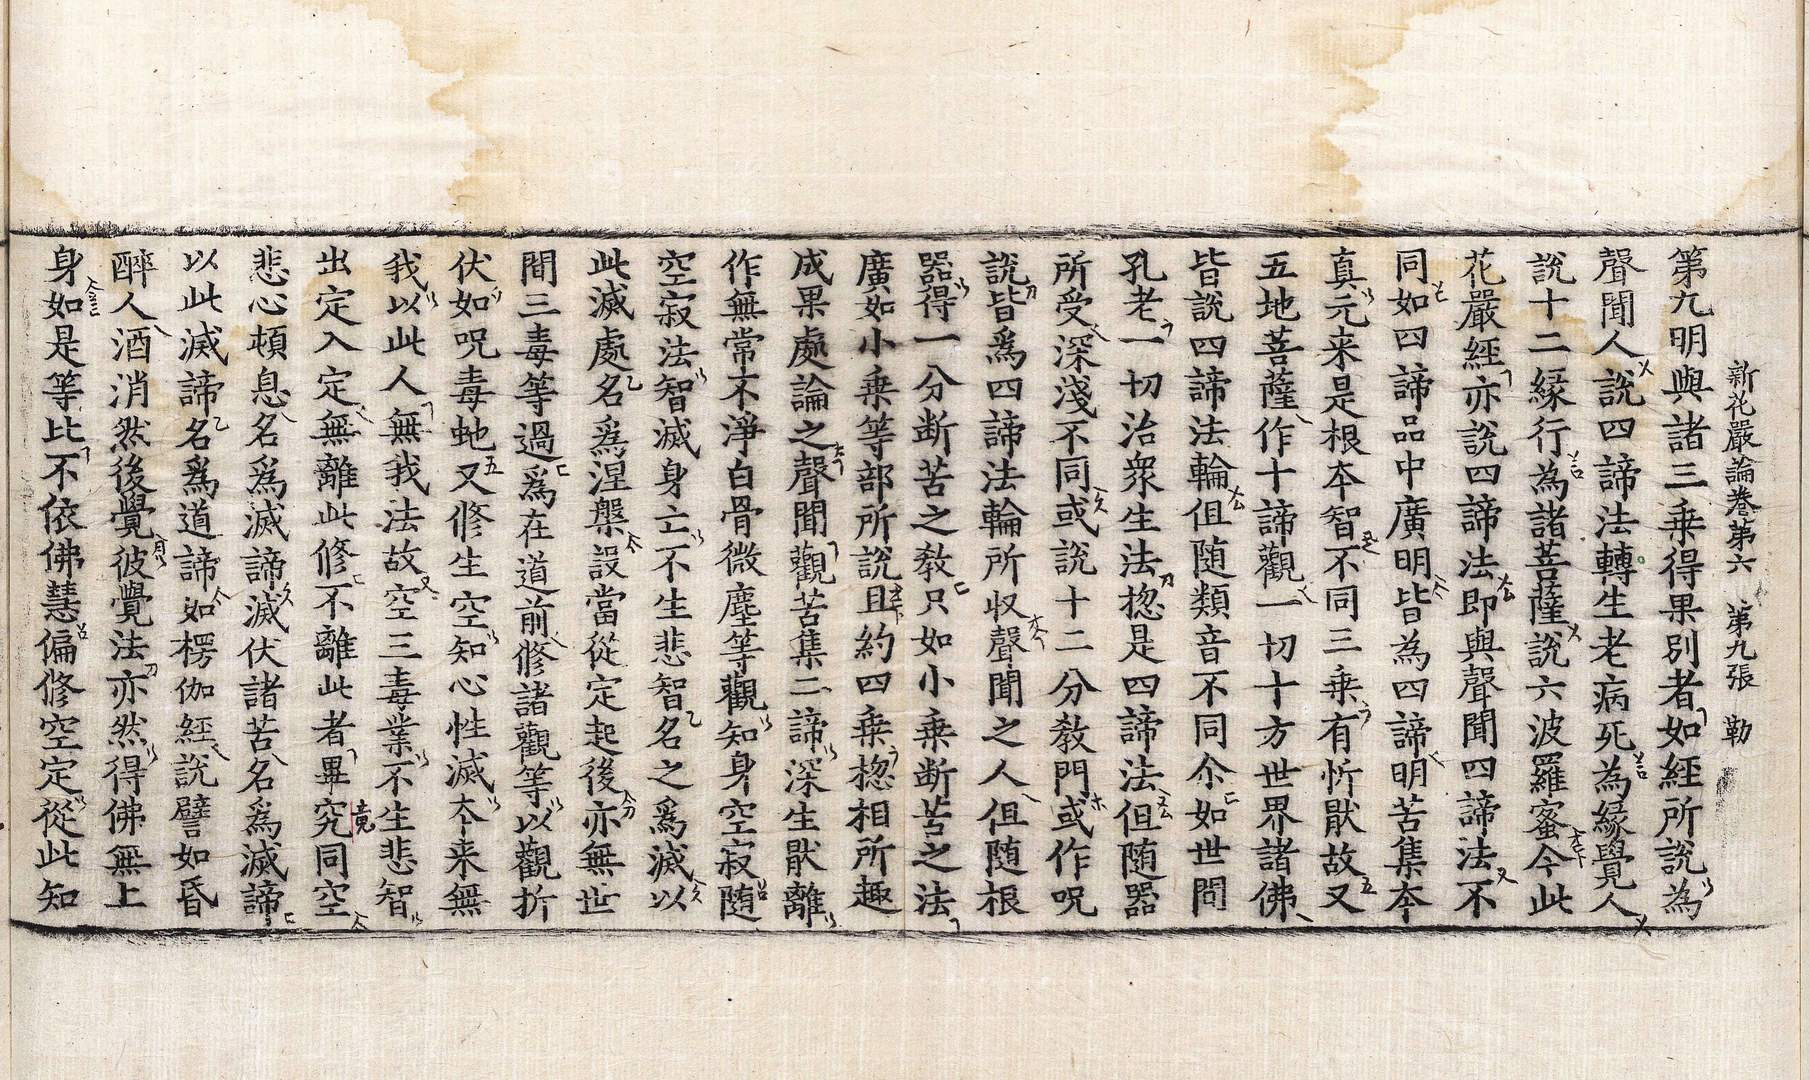 新花嚴論卷第六 第九張 勒
第九明與諸三乗得果別者如經所說為
聲聞人說四諦法轉生老病死為緣覺人
說十二緣行為諸菩薩說六波羅蜜今此
花嚴經亦說四諦法即與聲聞四諦法不
同如四諦品中廣明皆為四諦明苦集本
真元来是根本智不同三乗有忻猒故又
五地菩薩作十諦觀一切十方世界諸佛
皆說四諦法輪但随類音不同尒如世間
孔老一切治衆生法揔是四諦法但随器
所受深淺不同或說十二分教門或作呪
說皆爲四諦法輪所収聲聞之人但随根
器得一分断苦之教只如小乗断苦之法
廣如小乗等部所說且約四乗揔相所趣
成果處論之聲聞觀苦集二諦深生猒離
作無常不淨白骨微塵等觀知身空寂随
空寂法智滅身亡不生悲智名之爲滅以
此滅處名爲涅槃設當從定起後亦無世
間三毒等過爲在道前修諸觀等以觀折
伏如呪毒虵又修生空知心性滅本来無
我以此人無我法故空三毒業不生悲智
出定入定無離此修不離此者畢究同空
竟
悲心頓息名爲滅諦滅伏諸苦名爲滅諦
以此滅諦名爲道諦如楞伽經說譬如昏
醉人酒消然後覺彼覺法亦然得佛無上
身如是等比不依佛慧偏修空定從此知